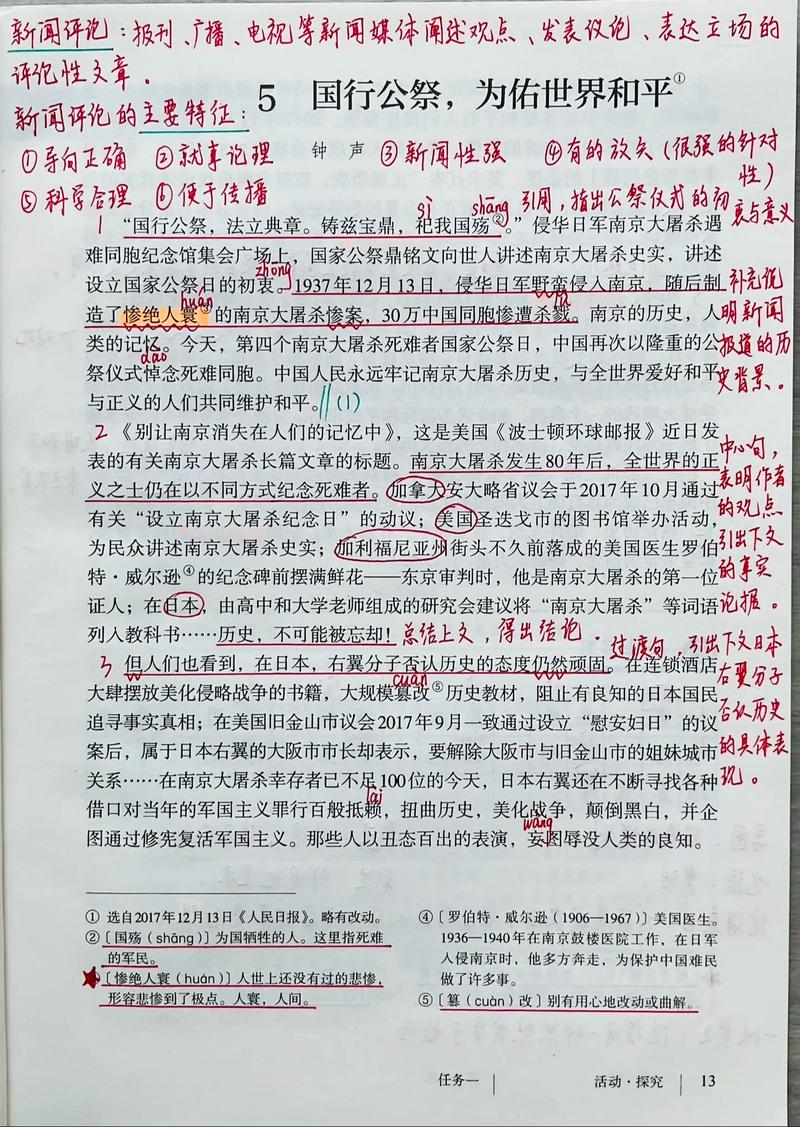 新闻评论：报刊、广播、电视等新闻媒体阐述观点、发表议论、表达立场的
评论性文章。
5 国行公祭，为佑世界和平①
新闻评论的主要特征：
①导向正确 ②就事论理 钟声 ③新闻性强 ④有的放矢（很强的针对
性）
⑤科学合理 ⑥便于传播
sì shāng 引用，指出公祭仪式的初
衷与意义
1 “国行公祭，法立典章。铸兹宝鼎，祀我国殇②。”侵华日军南京大屠杀遇
难同胞纪念馆集会广场上，国家公祭鼎铭文向世人讲述南京大屠杀史实，讲述
zhōng
设立国家公祭日的初衷。1937年12月13日，侵华日军野蛮侵入南京，随后制
huán lù
造了惨绝人寰③的南京大屠杀惨案，30万中国同胞惨遭杀戮。南京的历史，人
类的记忆。今天，第四个南京大屠杀死难者国家公祭日，中国再次以隆重的公
dào
祭仪式悼念死难同胞。中国人民永远牢记南京大屠杀历史，与全世界爱好和平
与正义的人们共同维护和平。‖(1)
补充说
明新闻
报道的历
史背景。
2 《别让南京消失在人们的记忆中》，这是美国《波士顿环球邮报》近日发
表的有关南京大屠杀长篇文章的标题。南京大屠杀发生80年后，全世界的正
义之士仍在以不同方式纪念死难者。加拿大安大略省议会于2017年10月通过
有关“设立南京大屠杀纪念日”的动议；美国圣迭戈市的图书馆举办活动，
为民众讲述南京大屠杀史实；加利福尼亚州街头不久前落成的美国医生罗伯
特·威尔逊④的纪念碑前摆满鲜花——东京审判时，他是南京大屠杀的第一位
证人；在日本，由高中和大学老师组成的研究会建议将“南京大屠杀”等词语
列入教科书……历史，不可能被忘却！总结上文，得出结论。
中心句，
表明作者
的观点
引出下文
的事实
论据。
过渡句，引出下文日本
右翼分子
否认历史
的具体表
现。
3 但人们也看到，在日本，右翼分子否认历史的态度仍然顽固。在连锁酒店
cuàn
大肆摆放美化侵略战争的书籍，大规模篡改⑤历史教材，阻止有良知的日本国民
追寻事实真相；在美国旧金山市议会2017年9月一致通过设立“慰安妇日”的议
案后，属于日本右翼的大阪市市长却表示，要解除大阪市与旧金山市的姐妹城市
关系……在南京大屠杀幸存者已不足100位的今天，日本右翼还在不断寻找各种
lài
借口对当年的军国主义罪行百般抵赖，扭曲历史，美化战争，颠倒黑白，并企
wàng
图通过修宪复活军国主义。那些人以丑态百出的表演，妄图辱没人类的良知。
① 选自2017年12月13日《人民日报》。略有改动。
② 〔国殇（shāng）〕为国牺牲的人。这里指死难
的军民。
〔惨绝人寰（huán）〕人世上还没有过的悲惨，
形容悲惨到了极点。人寰，人间。
④〔罗伯特·威尔逊（1906—1967）〕美国医生。
1936—1940年在南京鼓楼医院工作，在日军
入侵南京时，他多方奔走，为保护中国难民
做了许多事。
⑤〔篡（cuàn）改〕别有用心地改动或曲解。
任务一 活动·探究 13